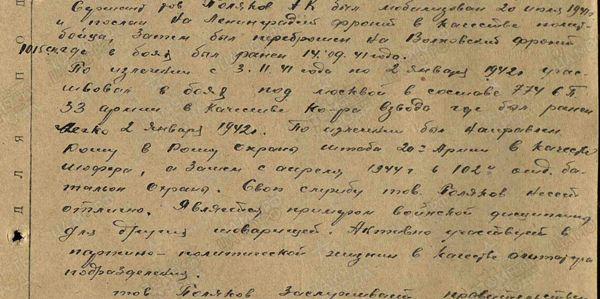 Сержант тов. Поляков А К был мобилизован 20 июля 1941 г
и послан на Ленинградский фронт в качестве полит-
бойца, затем был переброшен на Волховский фронт
где в боях был ранен 14. 09. 41 года.
По излечении с 3. 11. 41 года по 2 января 1942 г учас-
твовал в боях под москвой в составе 774 СП
33 армии в качестве ко-ра взвода где был ранен
легко 2 января 1942 г. По излечении был направлен
в Роту охраны штаба 20й Армии в качестве
а затем с апреля 1944 г в 102й отд. ба-
тальон охраны. Свою службу тов. Поляков несет
отлично. Является примером воинской дисциплины
для других товарищей. Активно участвует в
партийно-политической жизни в качестве агитатора
подразделения.
тов Поляков Заслуживает правительствен
ДЛЯ ПОД